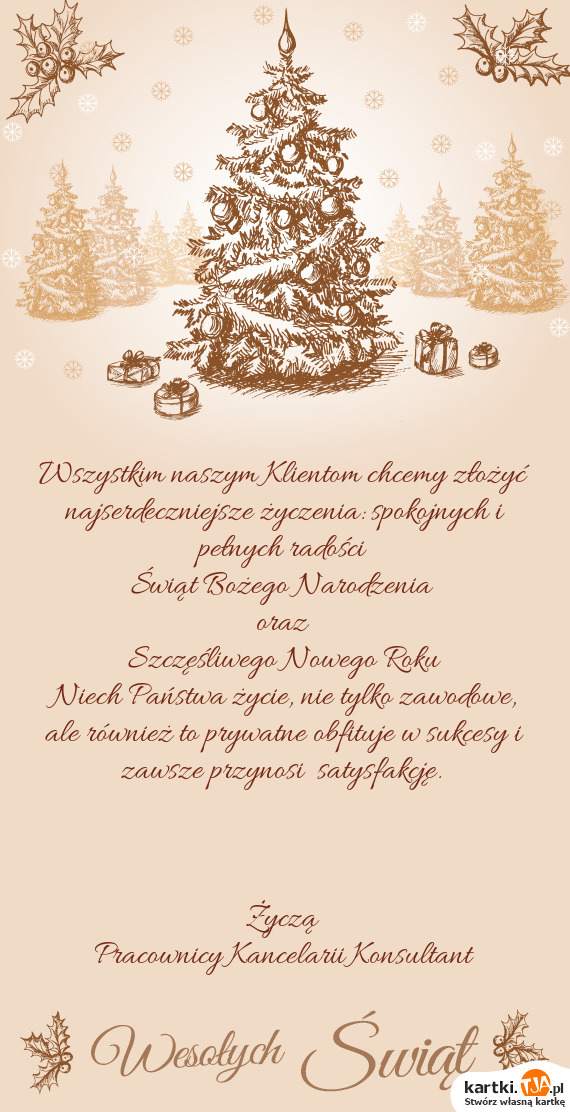 Wszystkim naszym Klientom chcemy złożyć
najserdeczniejsze życzenia: spokojnych i
pełnych radości
Świąt Bożego Narodzenia
oraz
Szczęśliwego Nowego Roku
Niech Państwa życie, nie tylko zawodowe,
ale również to prywatne obfituje w sukcesy i
zawsze przynosi  satysfakcję.
Życzą
Pracownicy Kancelarii Konsultant
Wesołych Świąt
kartki.TJA.pl
Stwórz własną kartkę